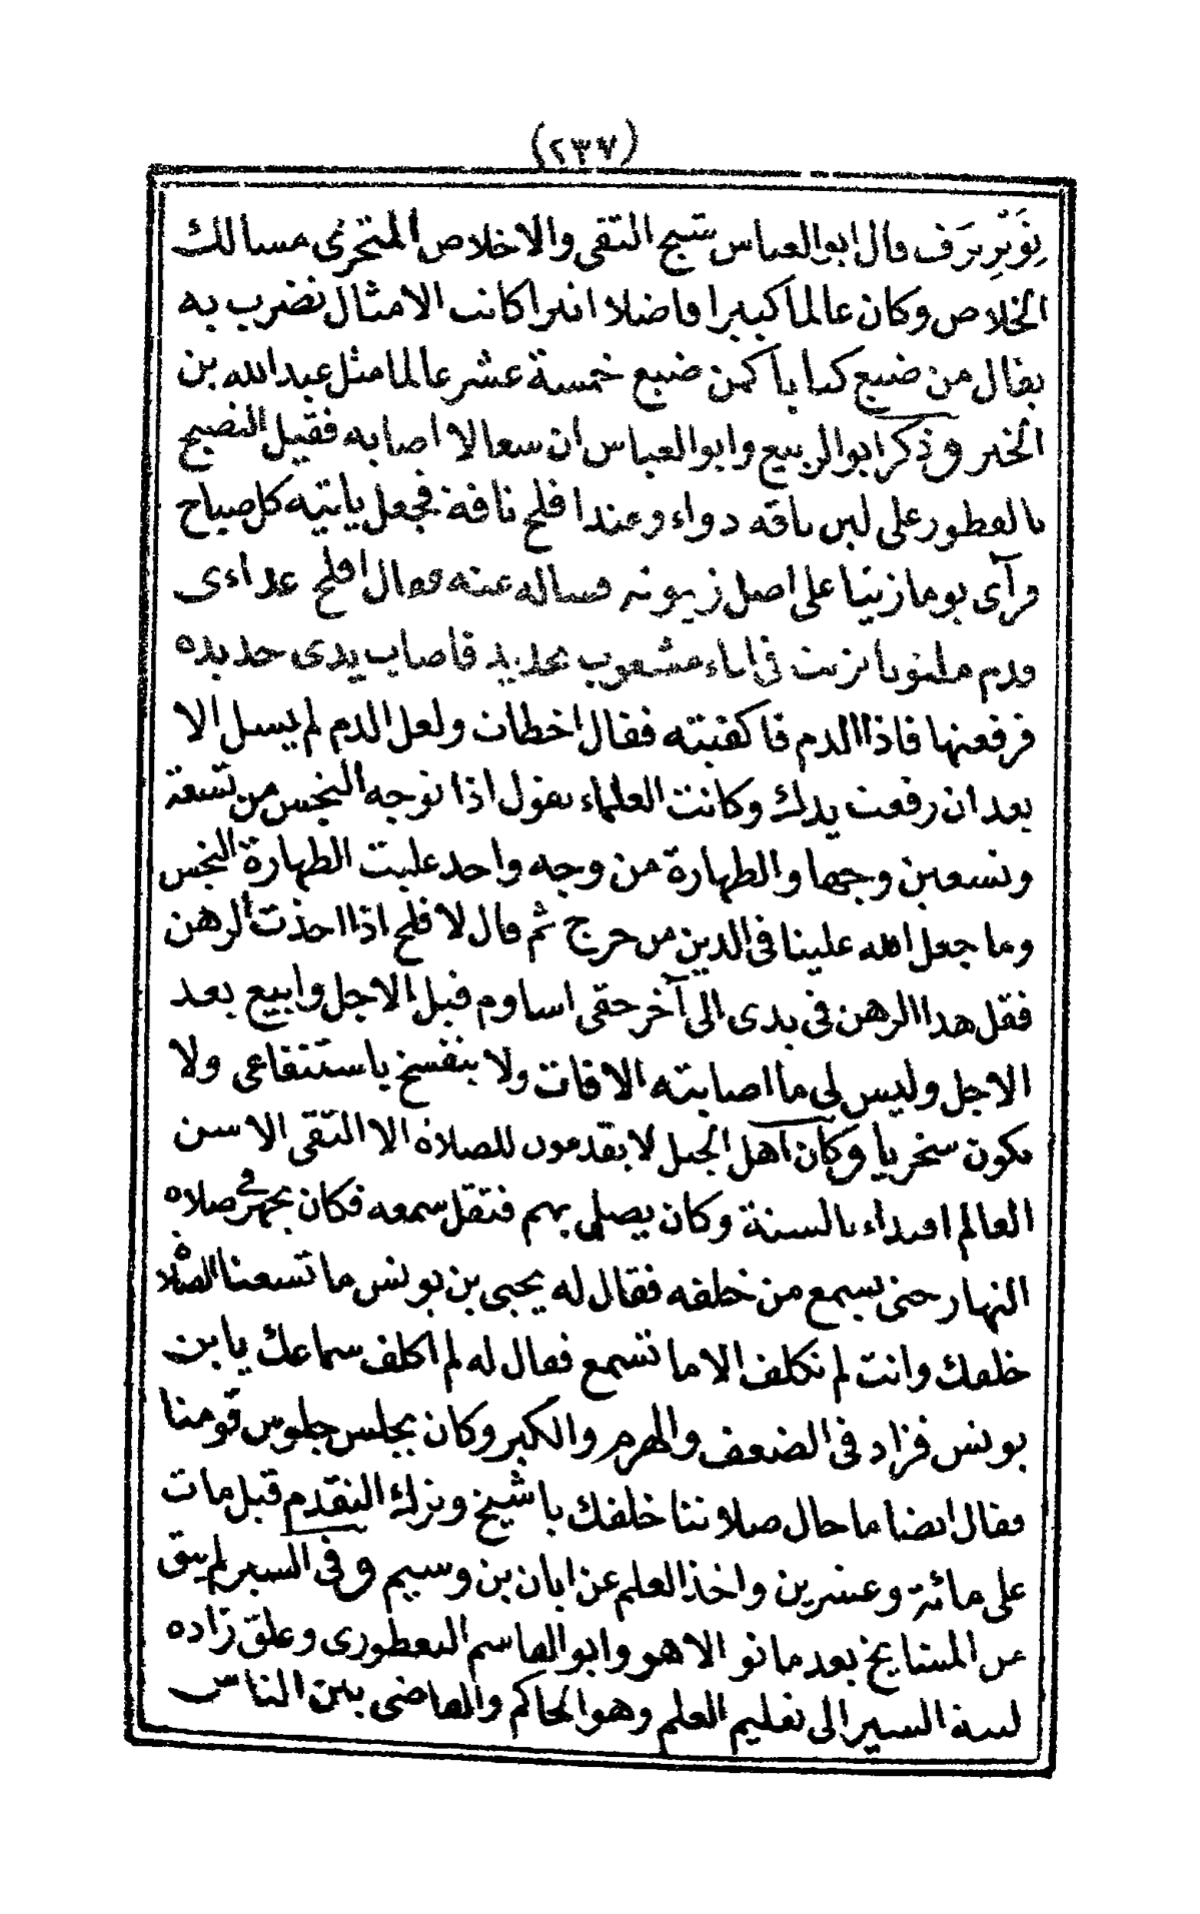 (٢٣٧)
قال ابو العباس شيخ التقى والاخلاص المتحرى مسالك
الخلاص وكان عالما كبيرا فاضلا اثيرا كانت الامثال تضرب به
يقال من ضيع كتابا كمن ضيع خمسة عشر عالما مثل عبد الله بن
الخير وذكر ابو الربيع وابو العباس ان سعالا اصابه فقيل النصيح
بالفطور على لبن ناقه دواء وعند افلح ناقة فجعل يأتيه كل صباح
فرآى يوما زيتا على اصل زيتونه فساله عنه فقال افلح غداءى
ودم ملئوبا بزيت فى اناء مشعوب بحديد فاصاب يدى حديده
فرفعتها فاذا الدم فاكفيته فقال اخطات ولعل الدم لم يسل الا
بعد ان رفعت يدك وكانت العلماء تقول اذا توجه النجس من تسعة
وتسعين وجها والطهارة من وجه واحد غلبت الطهارة النجس
وما جعل الله علينا فى الدين من حرج ثم قال لافلح اذا اخذت الرهن
فقل هدا الرهن فى يدى الى آخر حقى اساوم قبل الاجل وابيع بعد
الاجل وليس لى ما اصابته الافات ولا ينفسخ باستنفاعى ولا
يكون سخريا وكان اهل الجبل لا يقدمون للصلاة الا التقى الاسن
العالم اقتداء بالسنة وكان يصلى بهم فثقل سمعه فكان يجهر فى صلاة
النهار حتى يسمع من خلفه فقال له يحيى بن يونس ما تسعنا الصلاة
خلفك وانت لم تكلف الا ما تسمع فقال له لم اكلف سماعك يا بن
يونس فزاد فى الضعف والهرم والكبر وكان يجلس جلوس قومنا
فقال ايضا ما حال صلاتنا خلفك يا شيخ وترك التقدم قبل مات
على مائة وعشرين واخذ العلم عن ابان بن وسيم وفى السير لم يبق
من المشايخ بعد مانو الا هو وابو القاسم البغطورى وعلق زاده
لسنة السير الى تعليم العلم وهو الحاكم والقاضى بين الناس